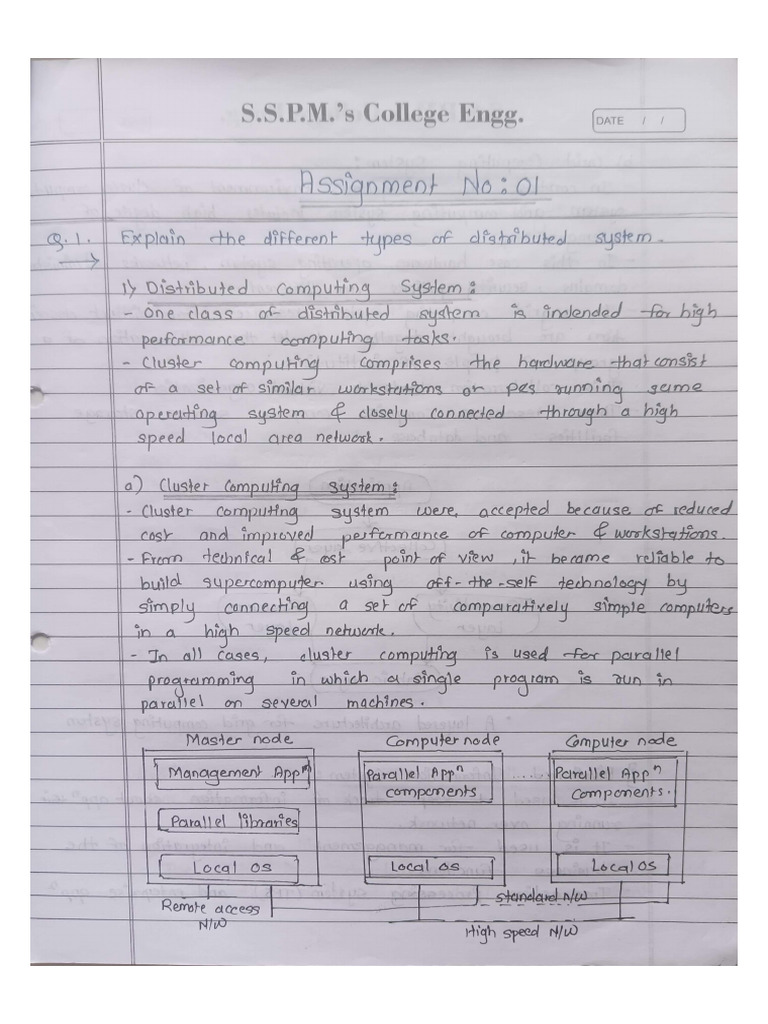 S.S.P.M.'s College Engg.
DATE / /
Assignment No: 01
Q.1. Explain the different types of distributed system.
1) Distributed Computing System:
- One class of distributed system is indended for high
performance computing tasks.
- Cluster computing comprises the hardware that consist
of a set of similar workstations or pcs running same
operating system & closely connected through a high
speed local area network.
a) Cluster Computing System:
- Cluster computing system were, accepted because of reduced
cost and improved performance of computer & workstations.
- From technical & cost point of view, it became reliable to
build supercomputer using off-the-self technology by
simply connecting a set of comparatively simple computers
in a high speed network.
- In all cases, cluster computing is used for parallel
programming in which a single program is run in
parallel on several machines.
Master node Computer node Computer node
Management Appⁿ Parallel Appⁿ Parallel Appⁿ
components Components.
Parallel libraries
Local OS Local OS Local OS
Remote access standard N/W
N/W High speed N/W